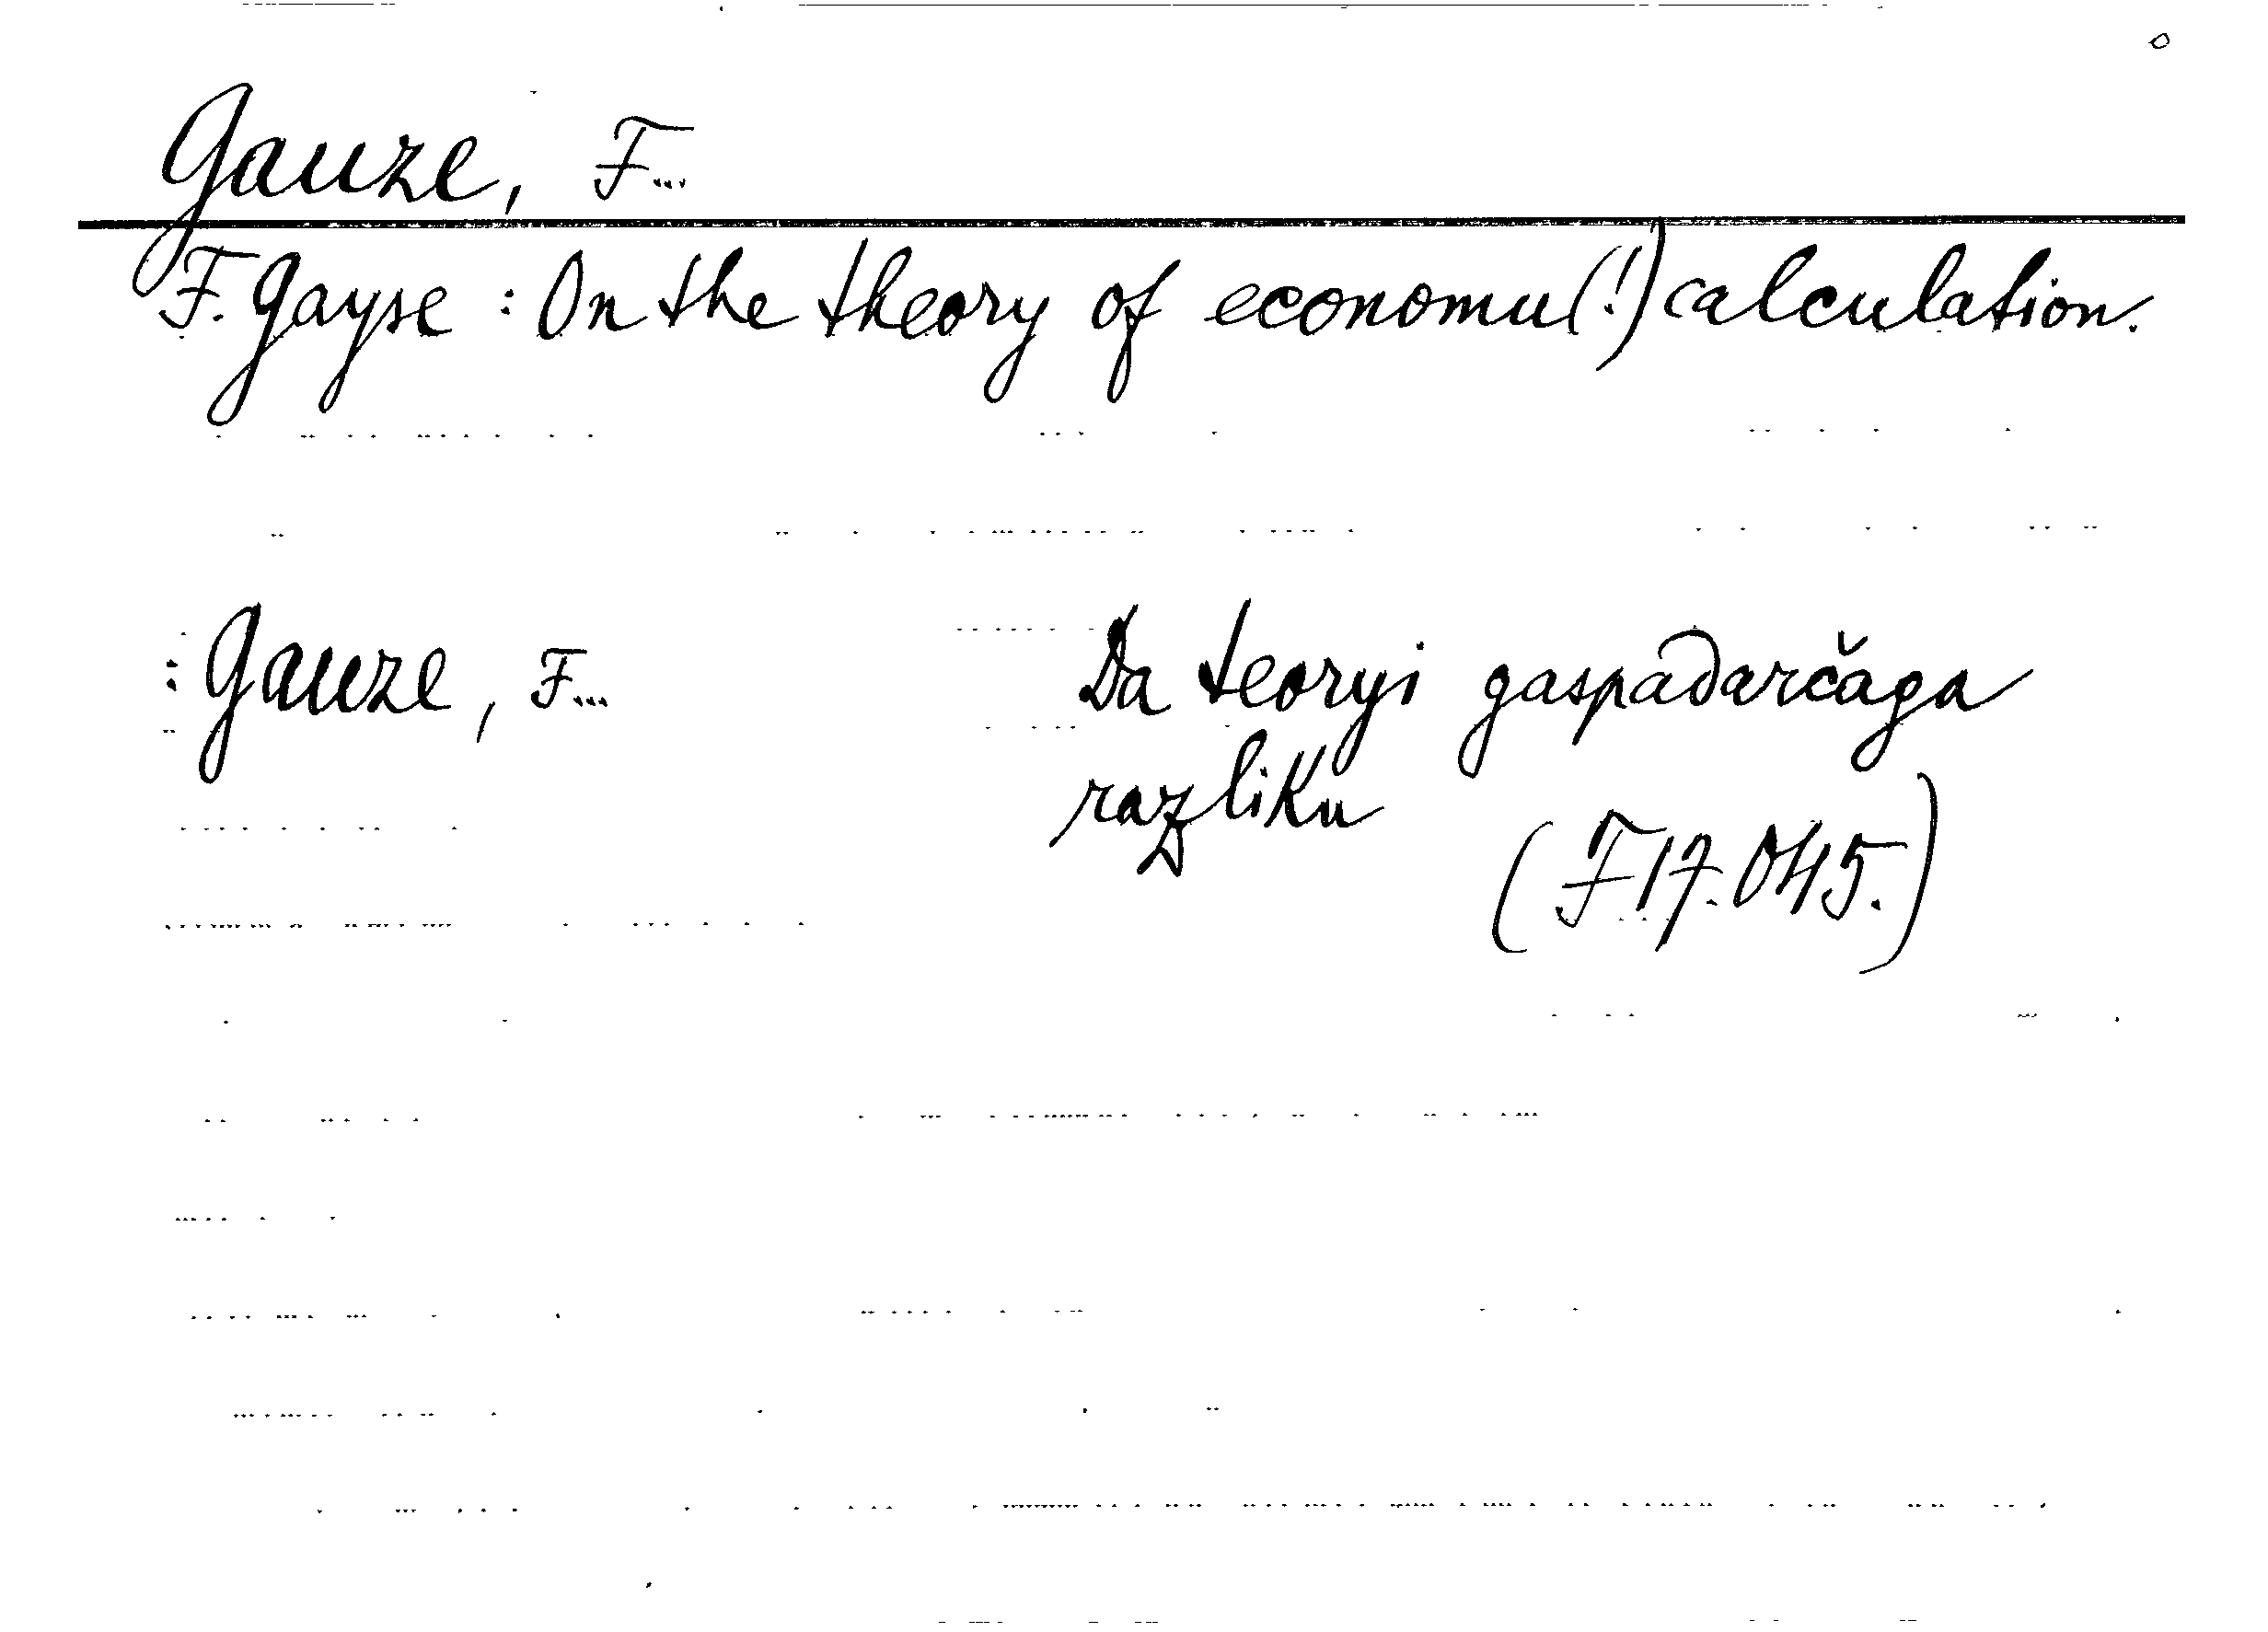 Gauze, F...
F. Gayse : On the theory of economu(!) calculation.
: Gauze, F... Da teoryi gaspadarčaga
razliku
(F17.045.)